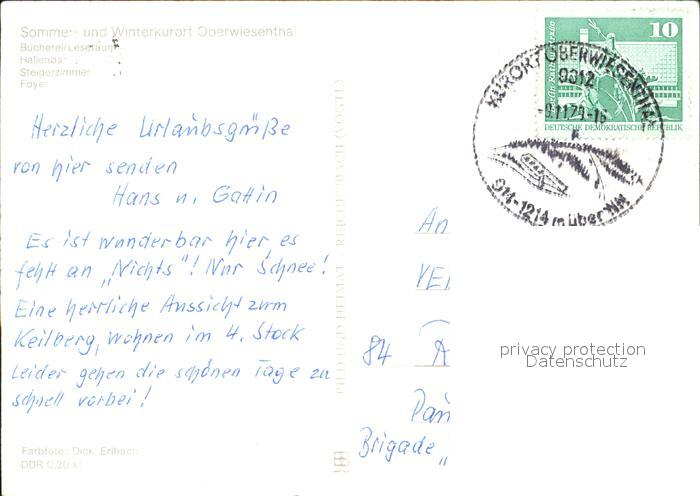 Sommer- und Winterkurort Oberwiesenthal
Bücherei/Leseraum
Hallenbar
Steigerzimmer
Foyer
Herzliche Urlaubsgrüße
von hier senden
Hans u. Gattin
Es ist wunderbar hier, es
fehlt an „Nichts"! Nur Schnee!
Eine herrliche Aussicht zum
Keilberg, wohnen im 4. Stock
Leider gehen die schönen Tage zu
schnell vorbei!
Farbfoto: Dick, Erlbach
DDR 0,20 M
BILD UND HEIMAT REICHENBACH (VOGTL)
10
DEUTSCHE DEMOKRATISCHE REPUBLIK
KURORT OBERWIESENTHAL
9312
-9.11.79-16
914-1214 m über NN
An
VE
84 A
Brigade „
privacy protection
Datenschutz